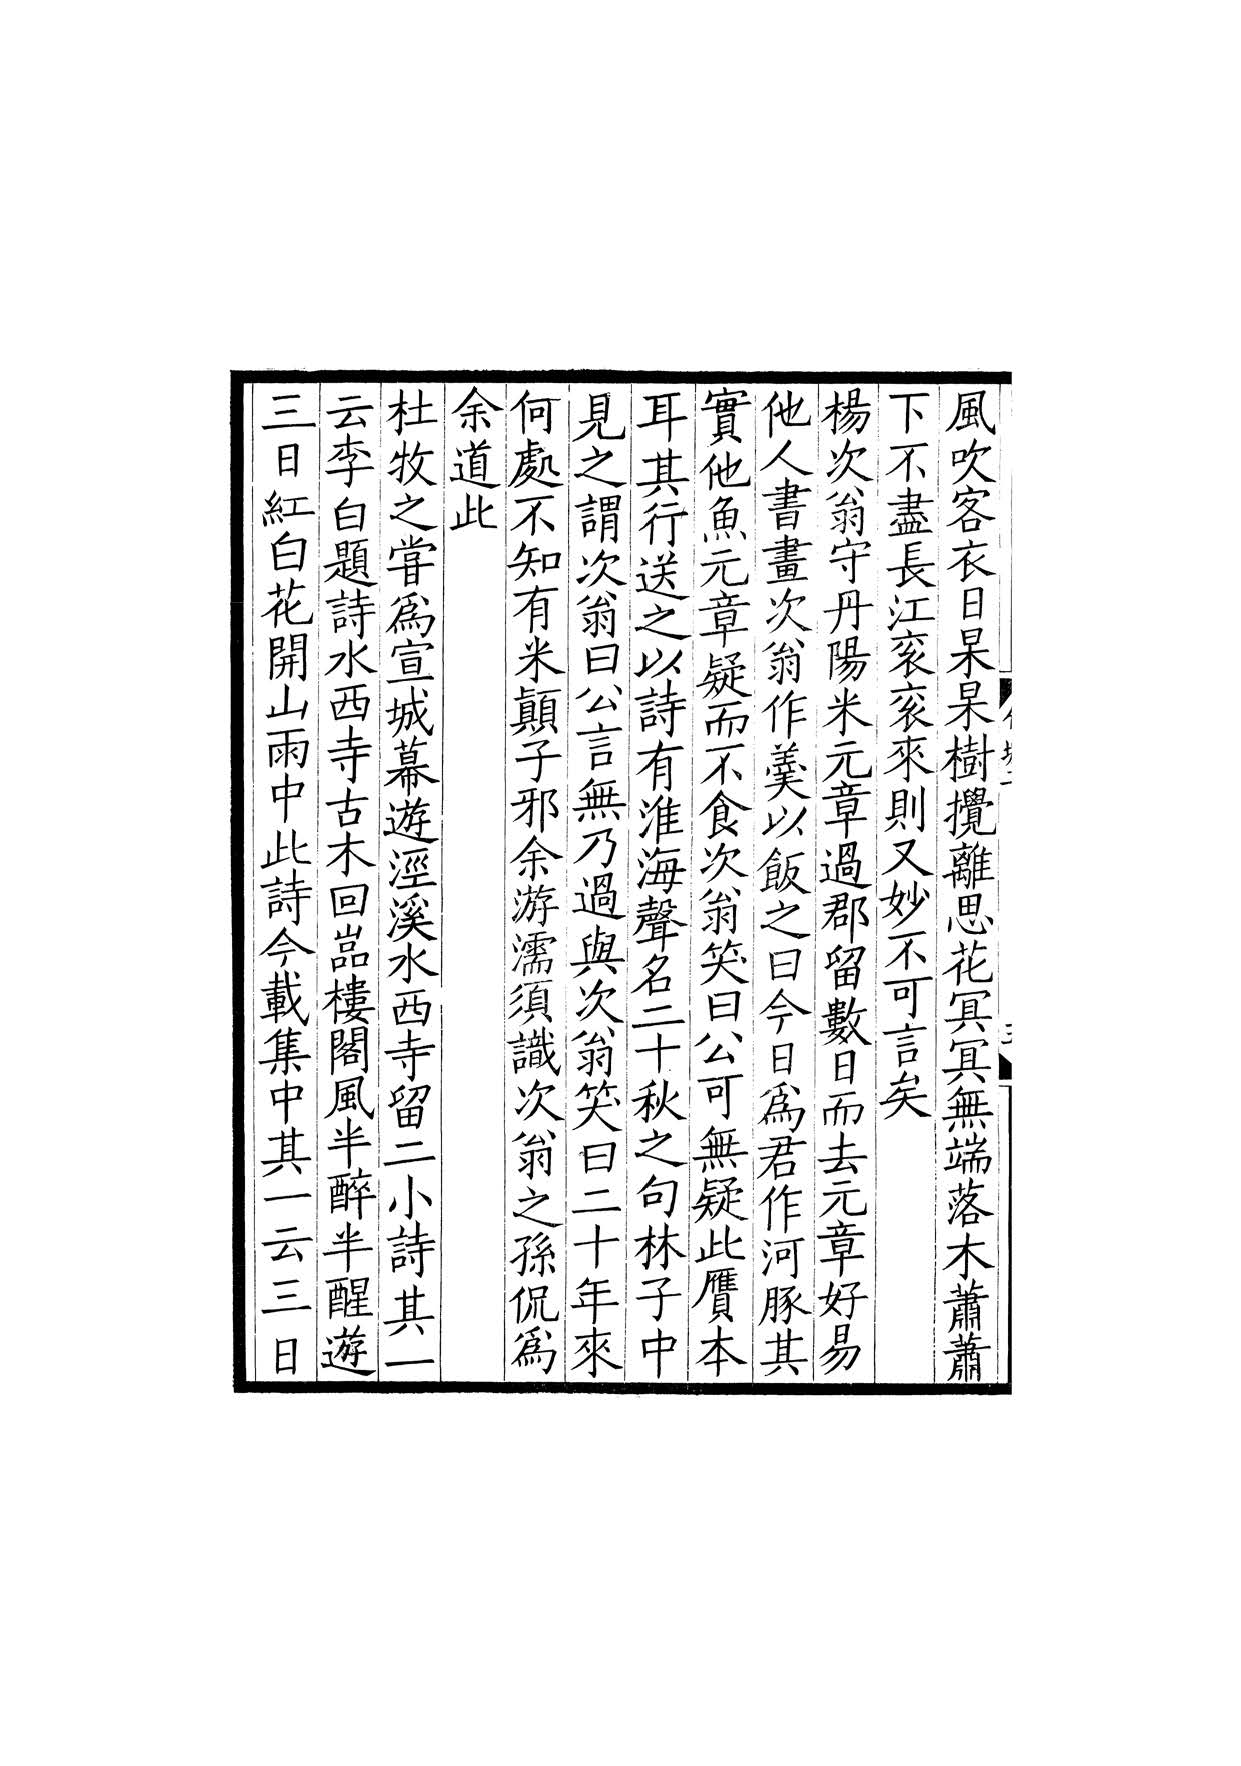 風吹客衣日杲杲樹攪離思花冥冥無端落木蕭蕭
下不盡長江衮衮來則又妙不可言矣
楊次翁守丹陽米元章過郡留數日而去元章好易
他人書畫次翁作羹以飯之曰今日為君作河豚其
實他魚元章疑而不食次翁笑曰公可無疑此贗本
耳其行送之以詩有淮海聲名二十秋之句林子中
見之謂次翁曰公言無乃過與次翁笑曰二十年來
何處不知有米顛子邪余游濡須識次翁之孫侃為
余道此
杜牧之甞為宣城幕遊涇溪水西寺留二小詩其一
云李白題詩水西寺古木回嵓樓閣風半醉半醒遊
三日紅白花開山雨中此詩今載集中其一云三日